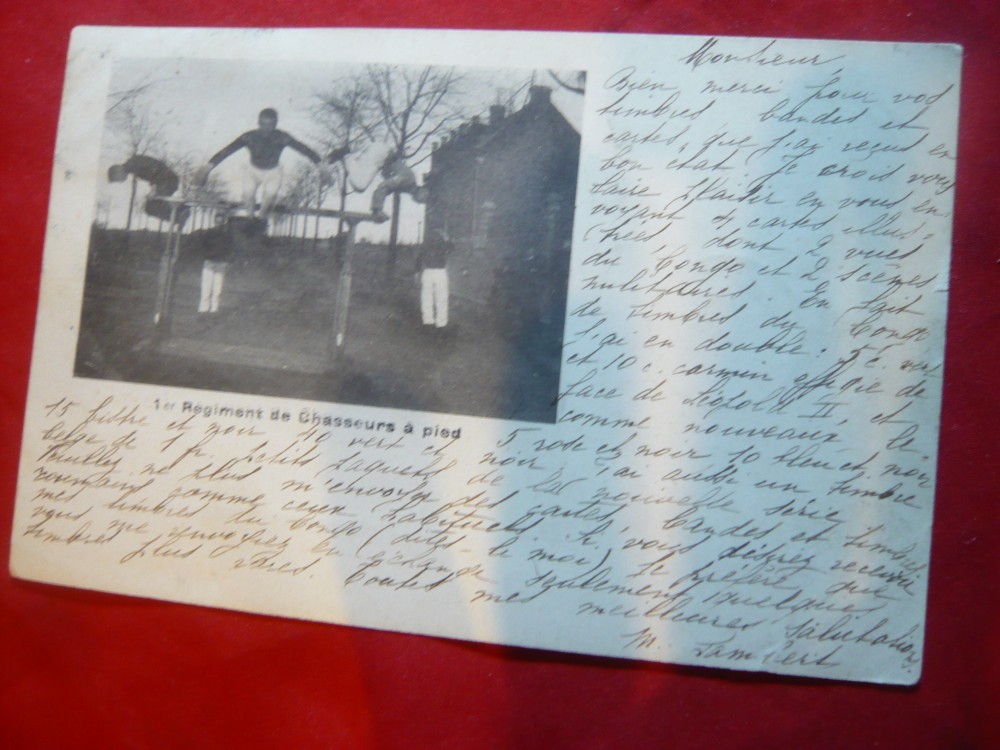 Monsieur
Bien merci pour vos
timbres bandes et
cartes, que j'ai reçus en
bon état. Je crois vous
faire plaisir en vous en
voyant 4 cartes illus=
trées, dont 2 vues
du Congo et 2 scènes
militaires. En fait
de timbres du Congo
j'ai en double: 5 c. vert
et 10 c. carmin effigie de
face de Léopold II, et
comme nouveaux: le
1er Régiment de Chasseurs à pied
15 et noir 10 vert et noir 5 rose et noir 10 bleu et noir
belge de 1 fr. petits paquets de la nouvelle série
ne plus m'envoyer des cartes, bandes et timbres
roumains comme ceux habituels. Si vous désirez recevoir
mes timbres du Congo (dites-le moi) je préfère que
vous me renvoyiez en échange seulement quelques
timbres plus rares. Toutes mes meilleures salutations.
M. Lambert